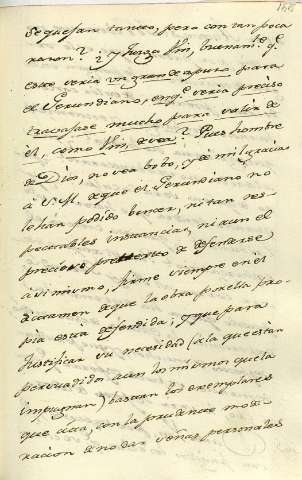 se quejan tanto, pero con tan poca
razon? ¿y juzga Vm, buenam.te q.e
esto seria un grande apuro para
el Gerundiano, en q.e seria preciso
trabajase mucho para salir de
èl, como Vm, de vea? Pues hombre
de Dios, no sea bobo, y de mil gracias
à de que el Gerundiano no
lo han podido vencer, ni tan res-
petables instancias, ni aun el
precioso pretexto de defenderse
à si mismo, firme siempre en el
dictamen de que la obra por ella pro-
pia està defendida; y que para
justificar su necesidad (a la que estàn
persuadidos aun los mismos que la
impugnan) bastan los exemplares
que cita, con la prudente mode-
racion de no dar señas personales